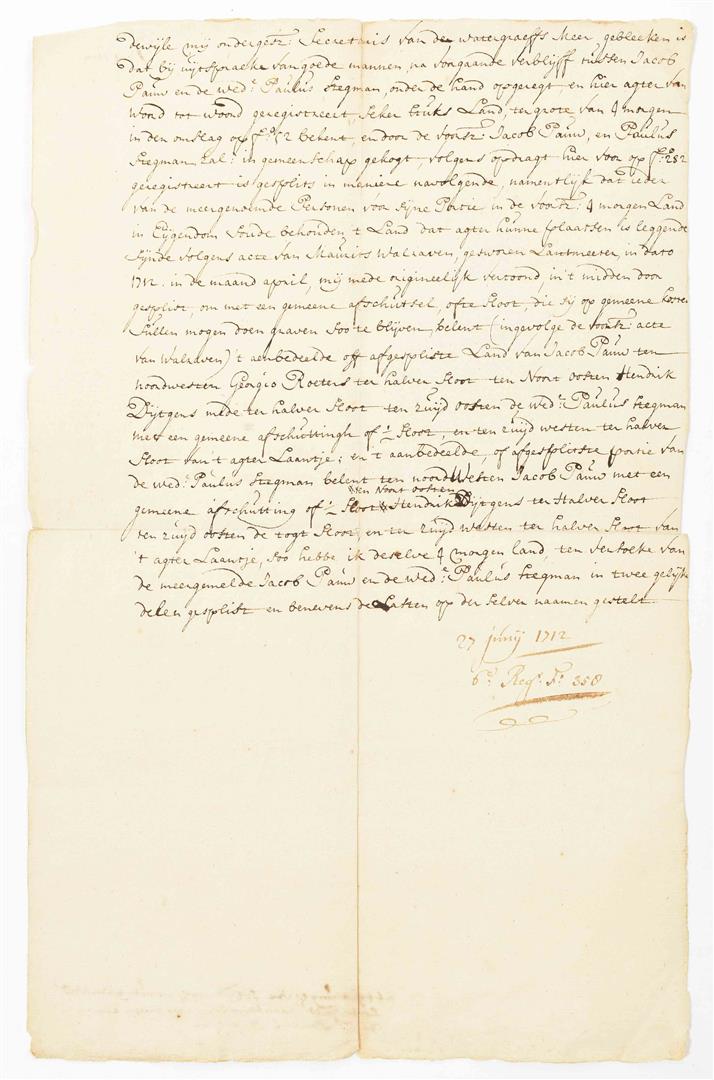 dewijle mij ondergesz: Secretaris van de watergraeffs Meer gebleeken is
dat bij uijtspraeke van goede mannen, na voorgaande verblijff tussen Jacob
Pauw en de wed:e Paulus Stegman, onder de hand opgeregt, en hier agter van
Woord tot woord geregistreert seker stuks Land, ter grote van 4 morgen
in den omslag op f:o 52 bekent, en door de voorsz: Jacob Pauw, en Paulus
Stegman zal: in gemeenschap gekogt, volgens opdragt hier voor op f:o 252
geregistreert is gesplits in maniere navolgende, namentlijk dat ieder
van de meergenoemde Personen voor sijne Portie in de voorsz: 4 morgen Land
in Eijgendom soude behouden, 't Land dat agter hunne plaatsen is leggende
sijnde volgens acte van Maurits Walraven, gesworen Lantmeeter, in dato
1712. in de maand april, mij mede origineelijk vertoond, in 't midden door
gesplist, om met een gemeene afschutsel, ofte sloot, die sij op gemeene kosten
sullen mogen doen graven soo te blijven, belent (ingevolge de voorsz: acte
van Walraven) 't aenbedeelde off afgespliste Land van Jacob Pauw ten
noordwesten Georgio Roeters ter halver sloot ten Noort oosten Hendrik
Dijtgens mede ter halver sloot ten zuijd oosten de wed:e Paulus Stegman
met een gemeene afschuttingh of 1/2 sloot, en ten zuijd westen ter halver
sloot van 't agter Laantje; en 't aanbedeelde, of afgesplitste portie van
de wed:e Paulus Stegman belent ten noord Westen Jacob Pauw met een
gemeene afschutting of 1/2 sloot ten Noort oosten Hendrik Dijtgens ter Halver sloot
ten zuijd oosten de togt sloot, en ter zuijd westen ter halver sloot van
't agter Laantje, soo hebbe ik deselve 4 morgen land, ten versoeke van
de meergemelde Jacob Pauw en de wed:e Paulus Stegman in twee gelijke
delen gesplist en benevens de Lasten op der selver naamen gestelt
27 junij 1712
6:e Reg:r F:o 358